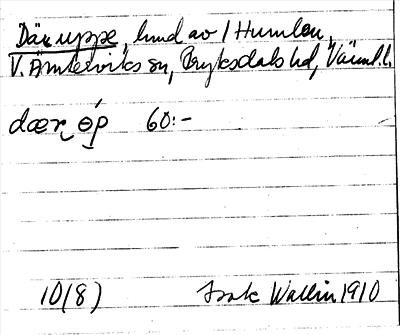 Där uppe, lund av / Humlen,
V. Ämterviks sn, Fryksdals hd, Värml. l.
dær ɵ́p 60:-
10(8) Isak Wallin 1910